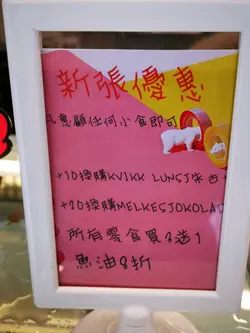 新張優惠
凡惠顧任何小食即可
+10換購KVIKK LUNSJ朱古
+20換購MELKESJOKOLAD
所有零食買3送1
魚油8折